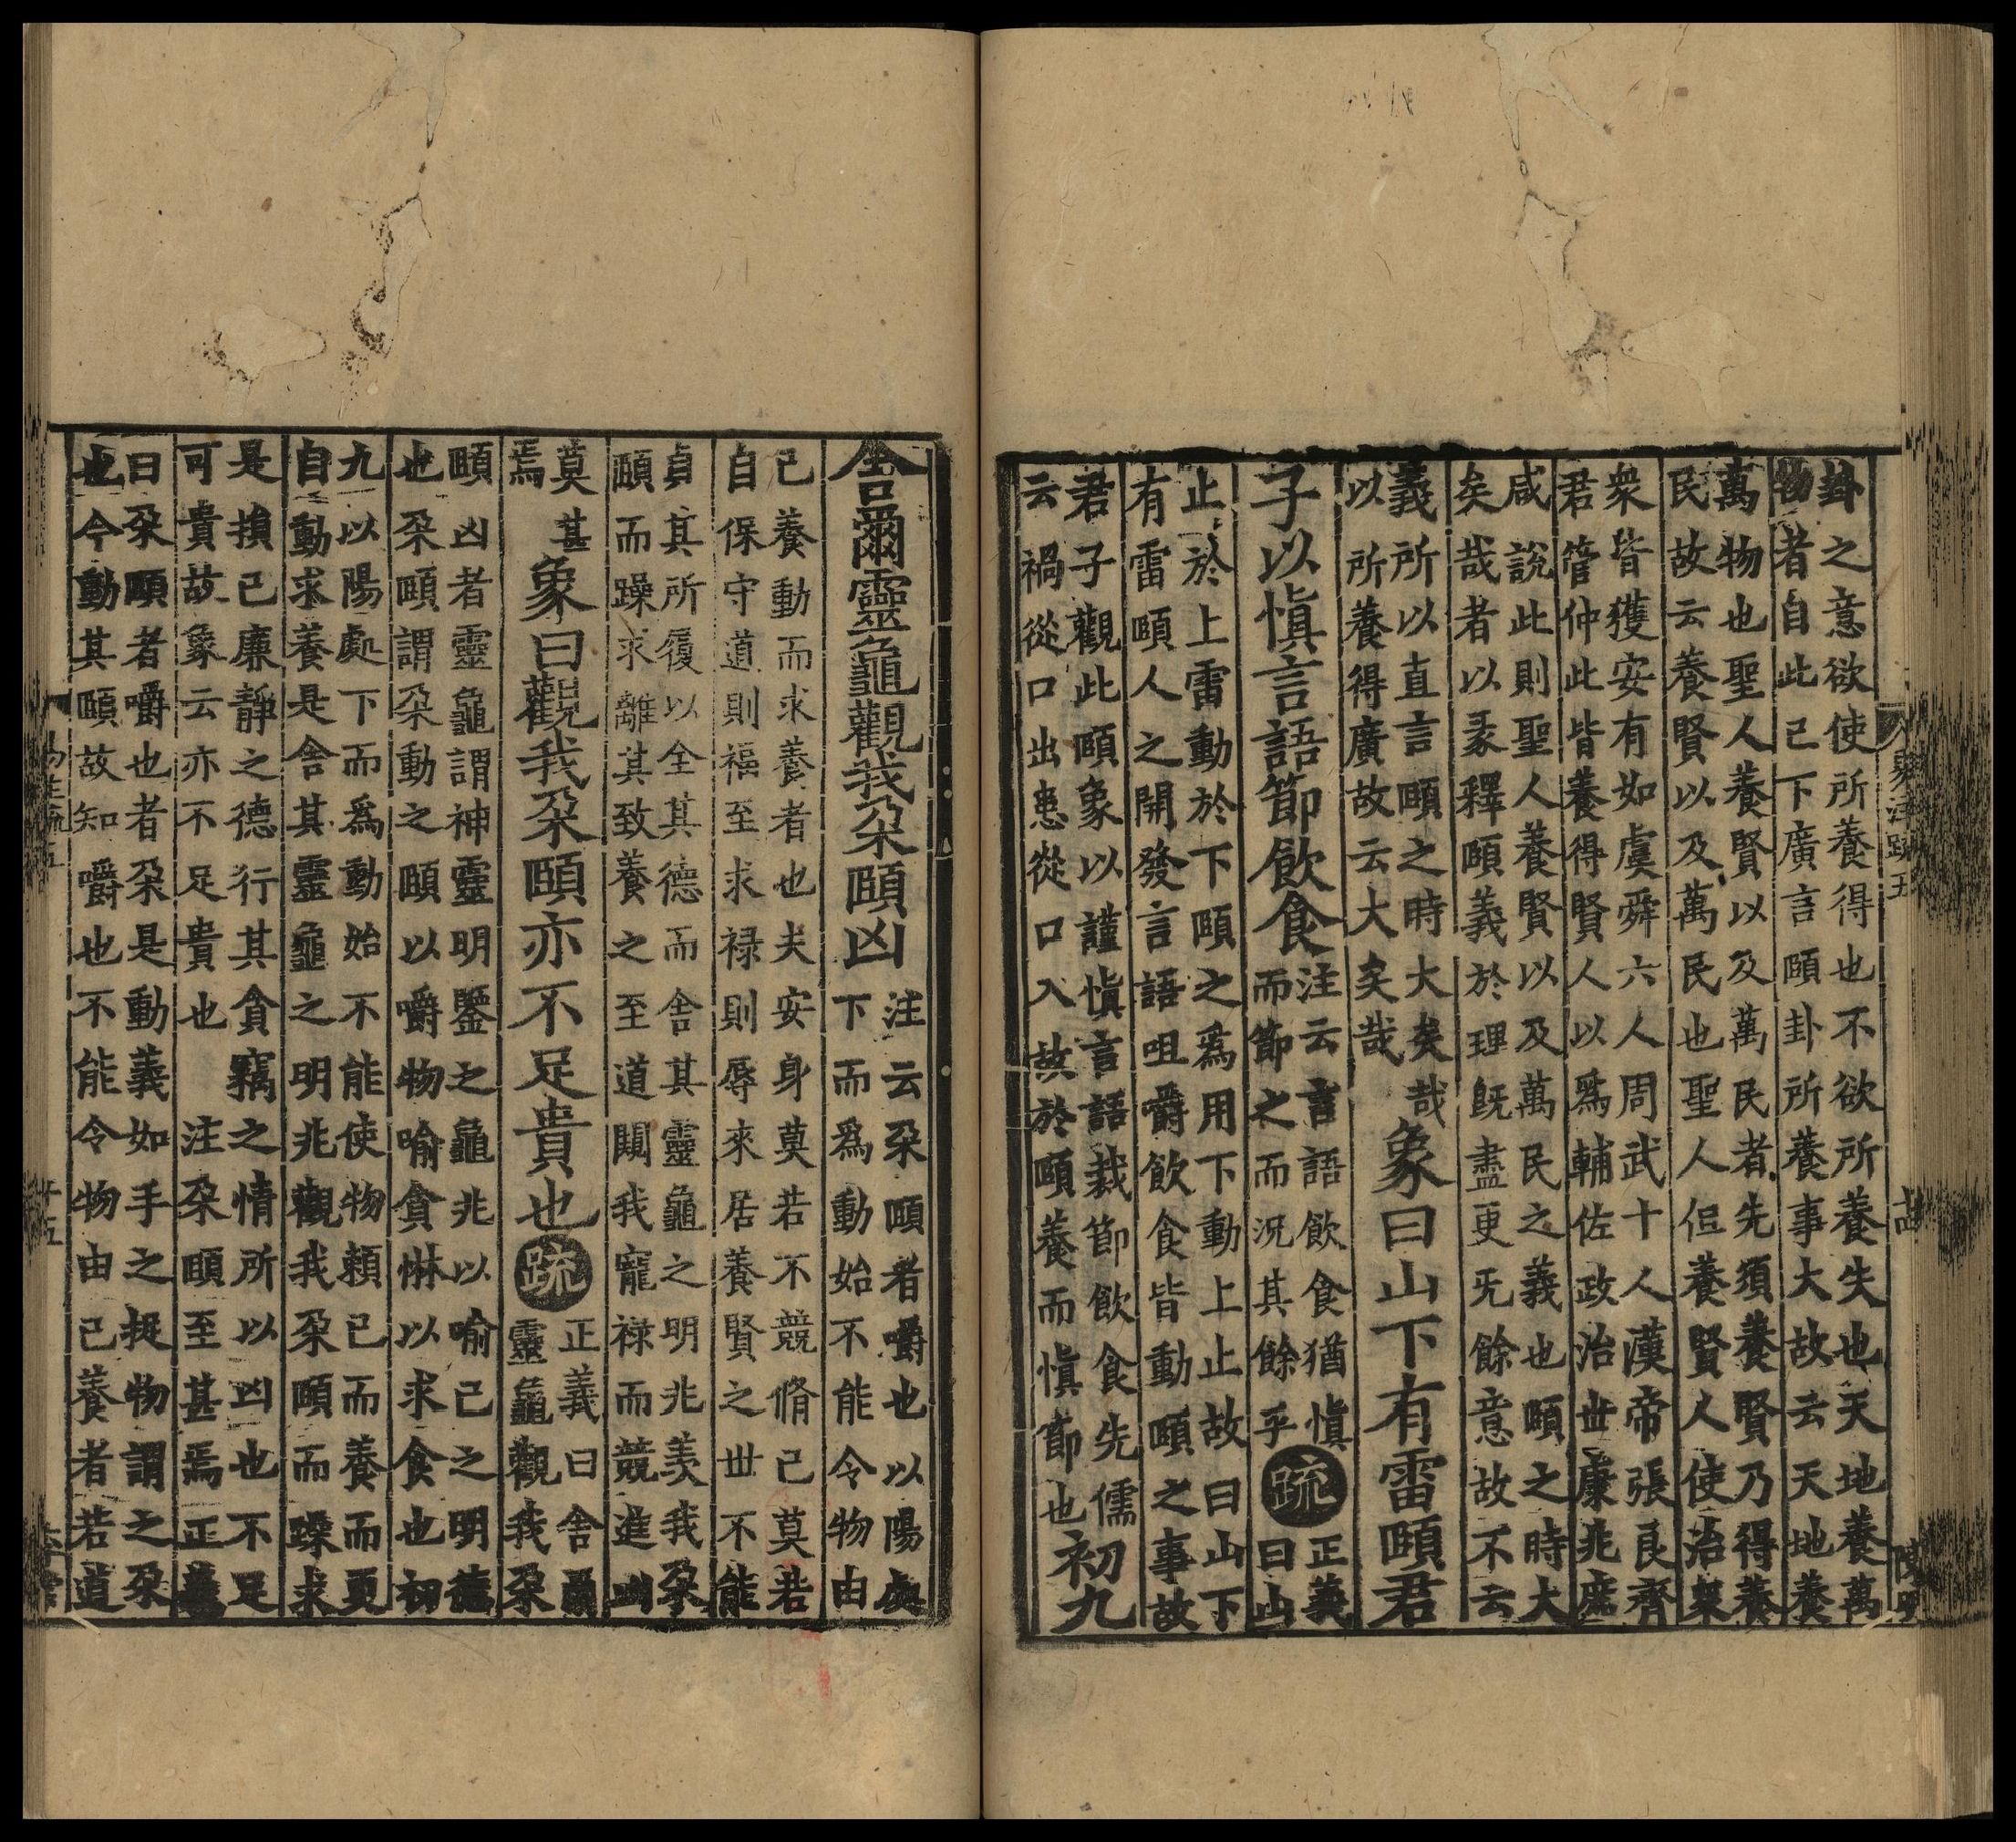 卦之意欲使所養得也不欲所養失也天地養萬
物者自此已下廣言頤卦所養事大故云天地養
萬物也聖人養賢以及萬民者先須養賢乃得養
民故云養賢以及萬民也聖人但養賢人使治衆
衆皆獲安有如虞舜六人周武十人漢帝張良齊
君管仲此皆養得賢人以爲輔佐政治世康兆庶
咸說此則聖人養賢以及萬民之義也頤之時大
矣哉者以彖釋頤義於理旣盡更旡餘意故不云
義所以直言頤之時大矣哉
以所養得廣故云大矣哉
象曰山下有雷頤君
子以慎言語節飲食
注云言語飲食猶慎
而節之而況其餘乎
疏
正義
曰山
止於上雷動於下頤之爲用下動上止故曰山下
有雷頤人之開發言語咀嚼飲食皆動頤之事故
君子觀此頤象以謹慎言語裁節飲食先儒
云禍從口出患從口入故於頤養而慎節也
初九
舍爾靈龜觀我朵頤凶
注云朵頤者嚼也以陽處
下而爲動始不能令物由
己養動而求養者也夫安身莫若不競脩己莫若
自保守道則福至求祿則辱來居養賢之世不能
貞其所履以全其德而舍其靈龜之明兆羡我朵
頤而躁求離其致養之至道闚我寵祿而競進凶
莫甚
焉
象曰觀我朵頤亦不足貴也
疏
正義曰舍爾
靈龜觀我朵
頤凶者靈龜謂神靈明鑒之龜兆以喻己之明德
也朵頤謂朵動之頤以嚼物喻貪惏以求食也初
九以陽處下而爲動始不能使物賴己而養而更
自動求養是舍其靈龜之明兆觀我朵頤而躁求
是損己廉靜之德行其貪竊之情所以凶也不足
可貴故象云亦不足貴也　注朵頤至甚焉正義
曰朵頤者嚼也者朵是動義如手之捉物謂之朵
也今動其頤故知嚼也不能令物由己養者若道